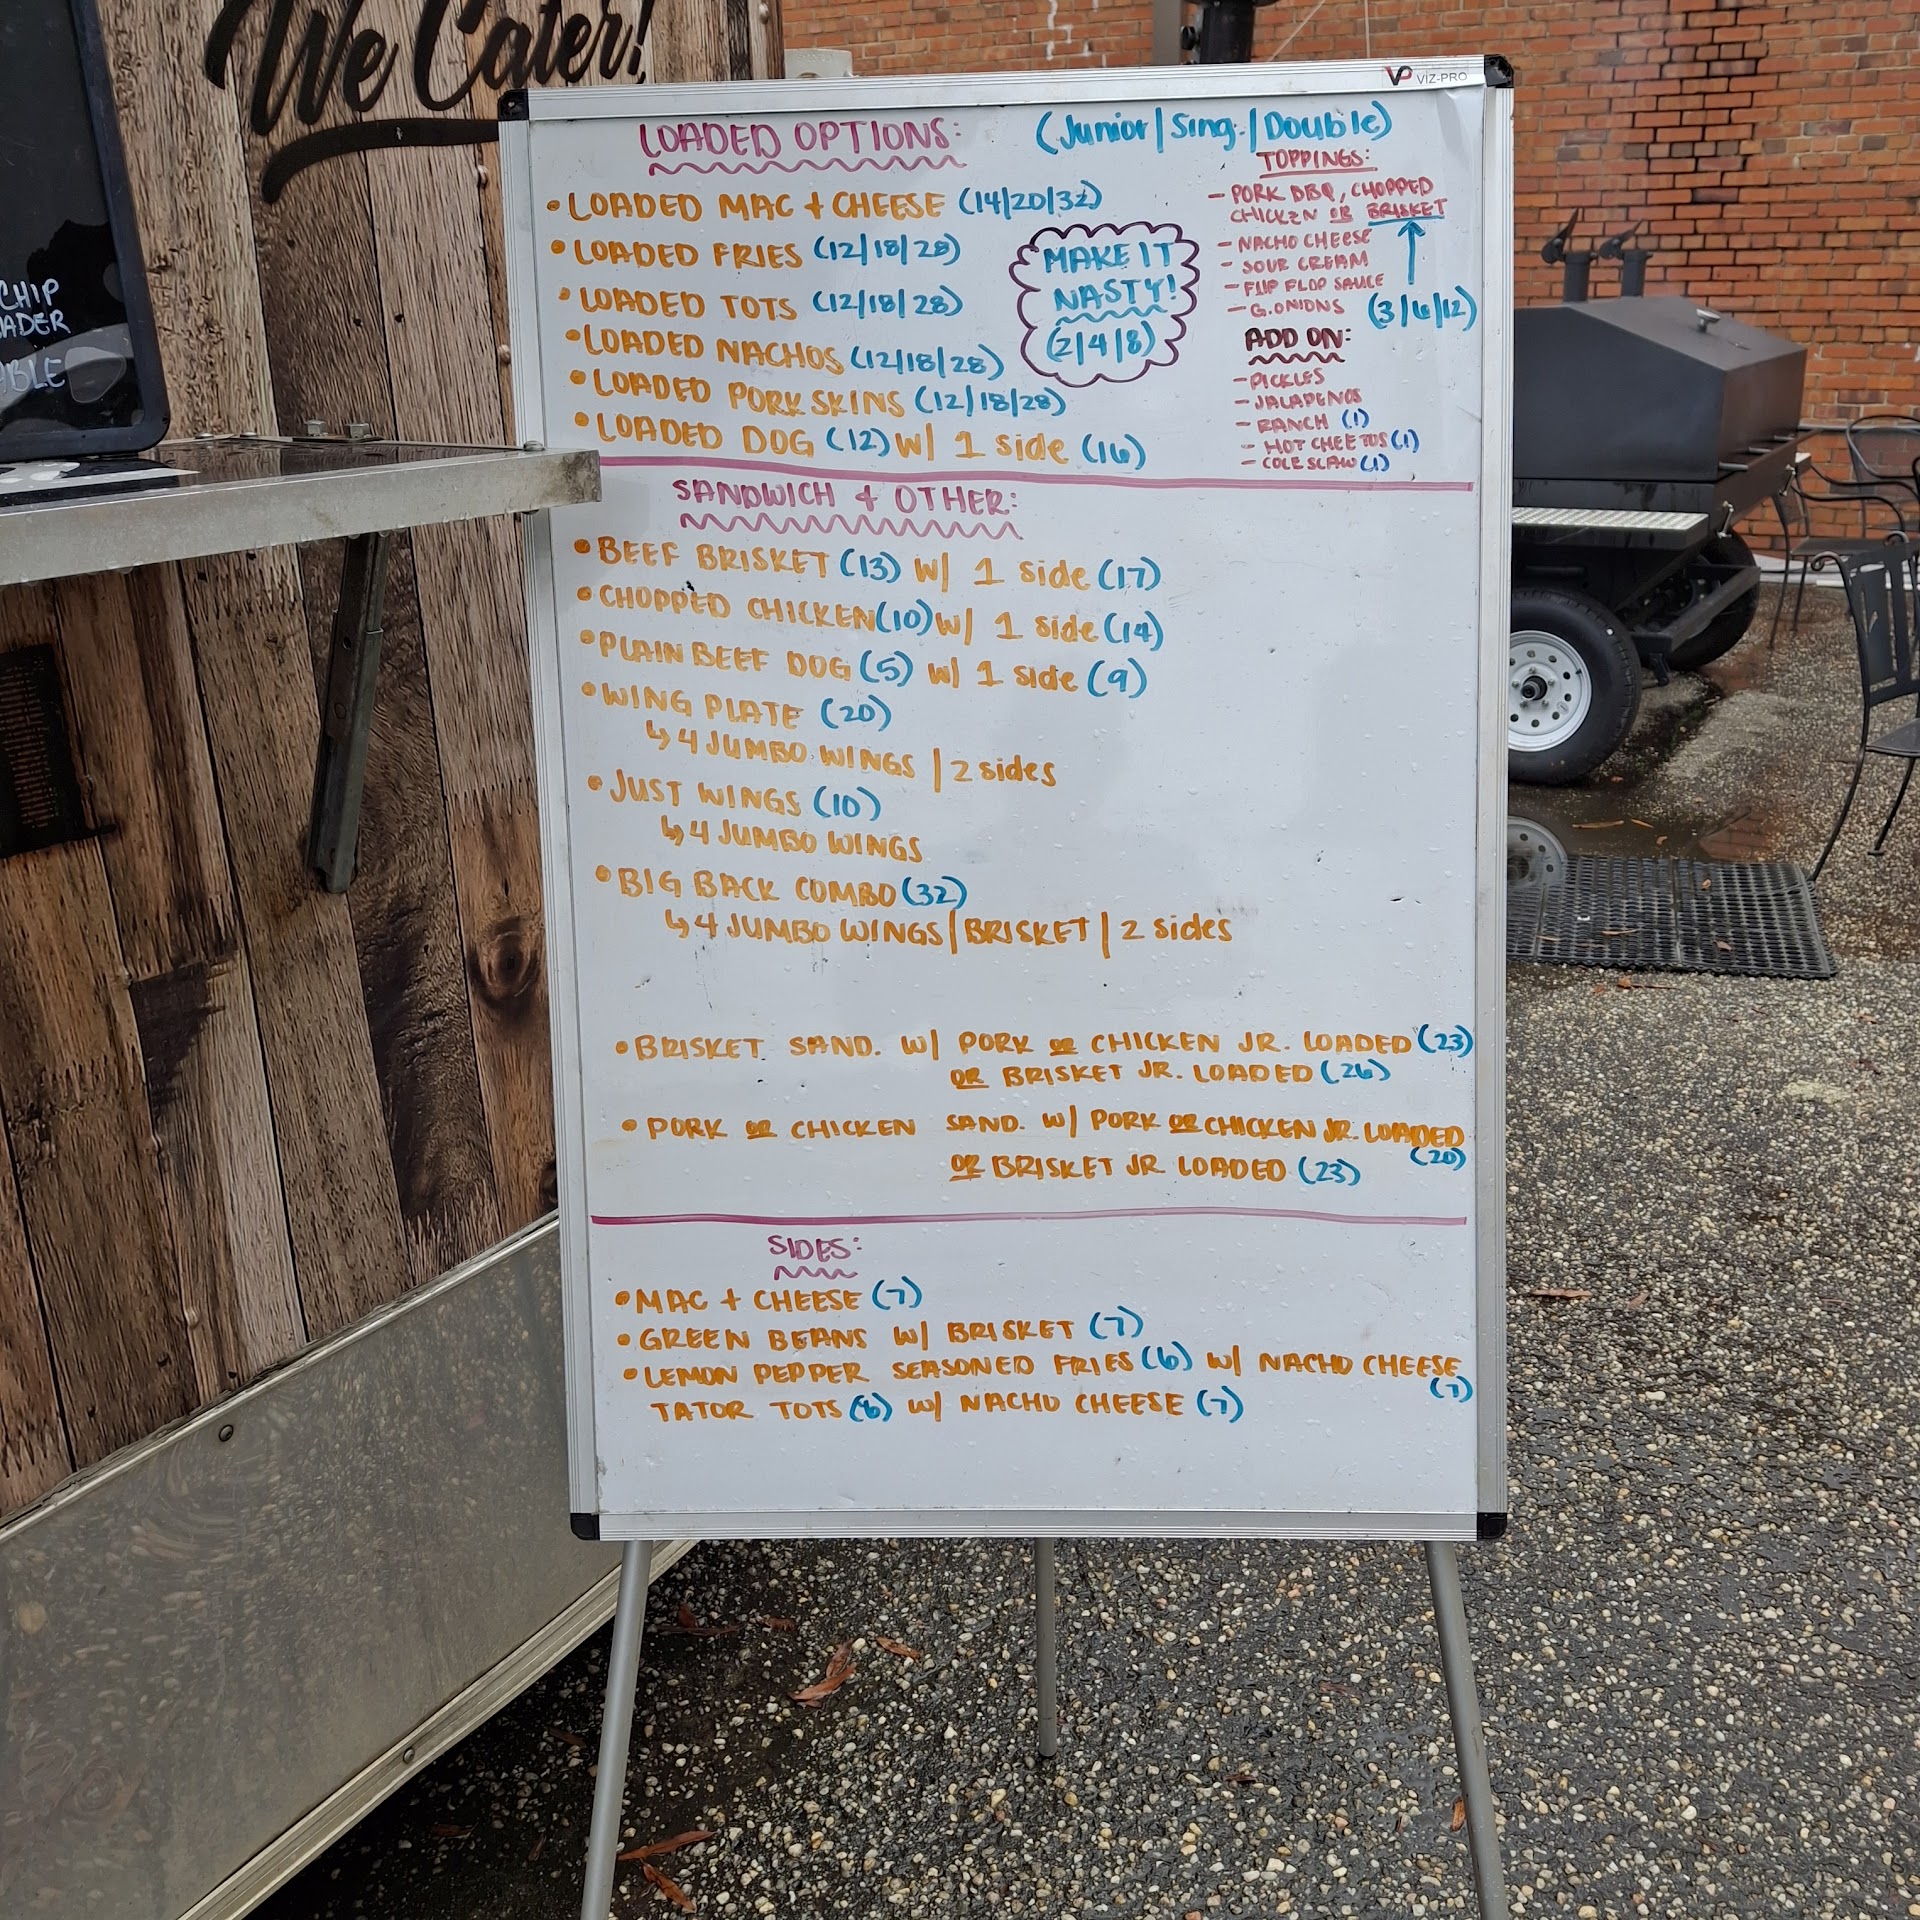 We Cater!
CHIP
ABLE
VIZ-PRO
LOADED OPTIONS: (Junior/Sing./Double)
• LOADED MAC + CHEESE (14/20/32)
• LOADED FRIES (12/18/28)
• LOADED TOTS (12/18/28)
• LOADED NACHOS (12/18/28)
• LOADED PORKSKINS (12/18/28)
• LOADED DOG (12) W/ 1 side (16)
MAKE IT
NASTY!
(2/4/8)
TOPPINGS:
- PORK BBQ, CHOPPED
CHICKEN OR BRISKET
- NACHO CHEESE
- SOUR CREAM
- FLIP FLOP SAUCE
- G.ONIONS
(3/6/12)
ADD ON:
- PICKLES
- JALAPENOS
- RANCH (1)
- HOT CHEETOS (1)
- COLE SLAW (1)
SANDWICH + OTHER:
• BEEF BRISKET (13) W/ 1 side (17)
• CHOPPED CHICKEN (10) W/ 1 side (14)
• PLAIN BEEF DOG (5) W/ 1 side (9)
• WING PLATE (20)
↳ 4 JUMBO WINGS | 2 sides
• JUST WINGS (10)
↳ 4 JUMBO WINGS
• BIG BACK COMBO (32)
↳ 4 JUMBO WINGS | BRISKET | 2 sides
• BRISKET SAND. W/ PORK OR CHICKEN JR. LOADED (23)
OR BRISKET JR. LOADED (26)
• PORK OR CHICKEN SAND. W/ PORK OR CHICKEN JR. LOADED
(20)
OR BRISKET JR LOADED (23)
SIDES:
• MAC + CHEESE (7)
• GREEN BEANS W/ BRISKET (7)
• LEMON PEPPER SEASONED FRIES (6) W/ NACHO CHEESE
(7)
TATOR TOTS (6) W/ NACHO CHEESE (7)